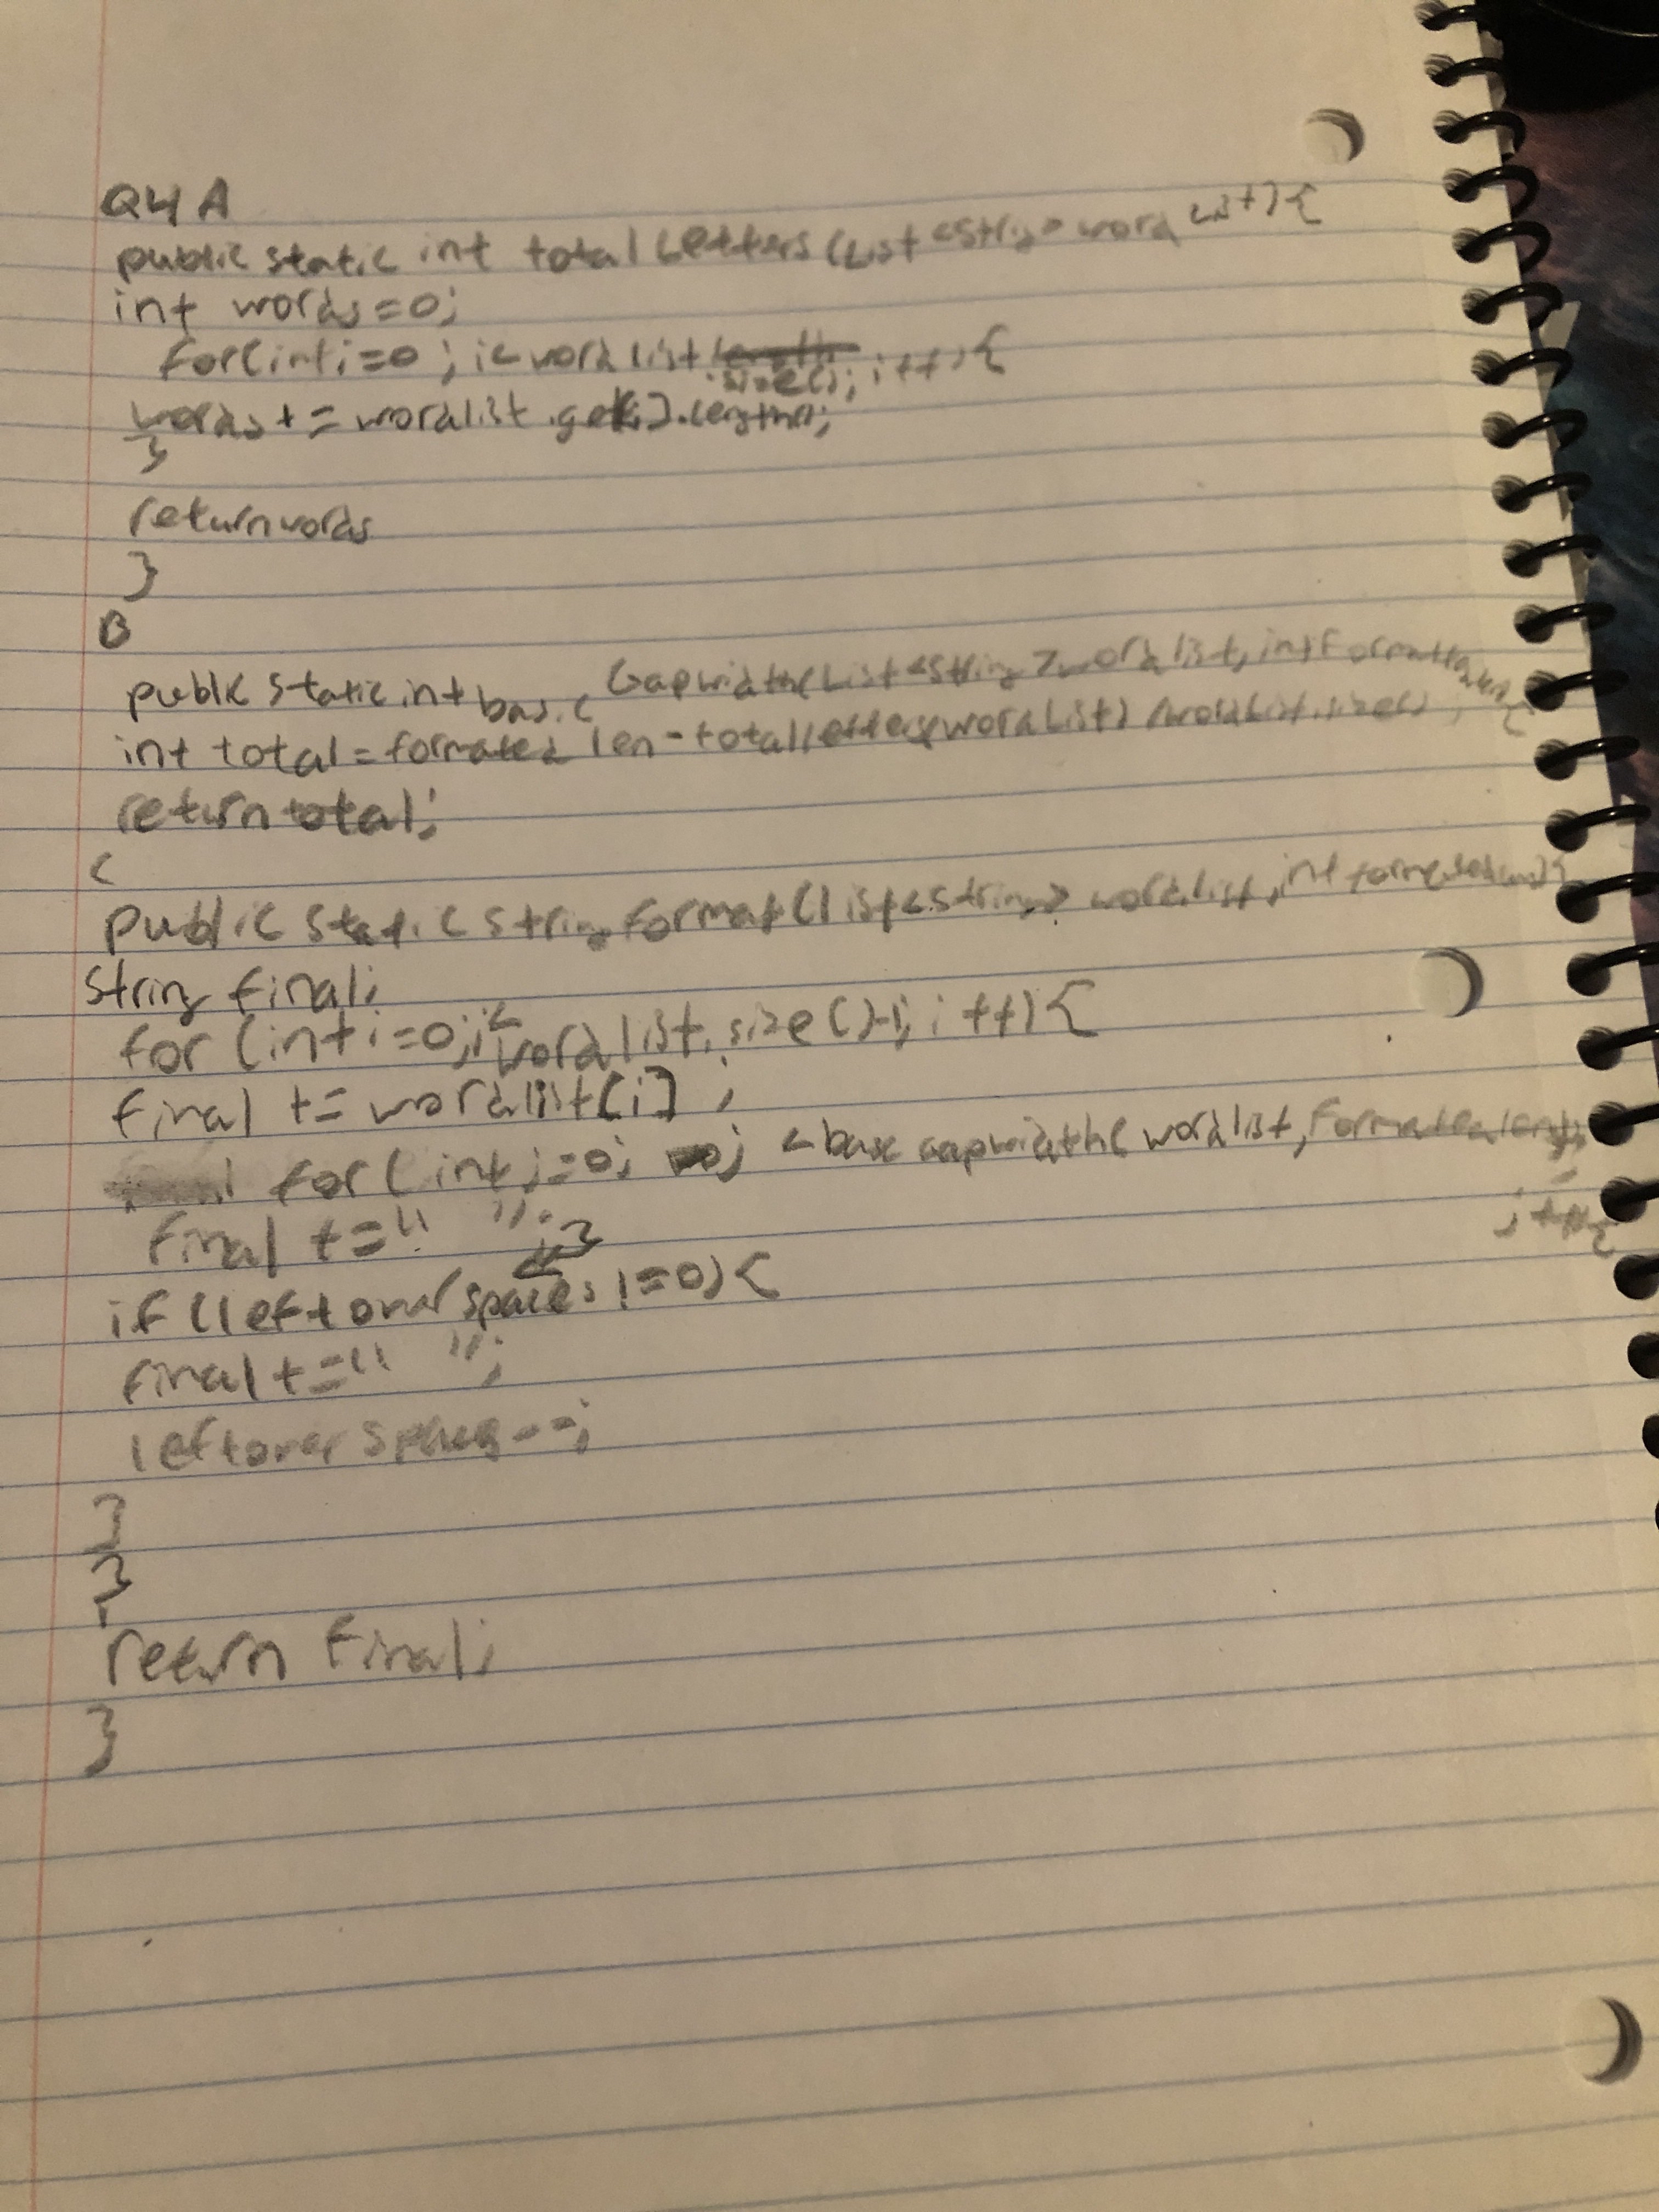 Q4 A
public static int total Letters (List <String> word List) {
int words = 0;
for(int i=0; i< word list .size(); i++) {
words += wordlist.get[i].length();
}
return words
}
B
public static int basic Gapwidth(List<String> wordlist, int Formatted len) {
int total = formated len - total letters(wordList) /wordList.size();
return total;
C
public static String format(List<String> wordlist, int formatedlen){
String final;
for (int i=0; i< wordlist.size()-1; i++){
final += wordlist[i];
for (int j=0; j < base gapwidth(wordlist, Formatted length);
j++){
final +=" ";}
if (leftover spaces !=0) {
final +=" ";
leftover spaces--;
}
}
return final;
}